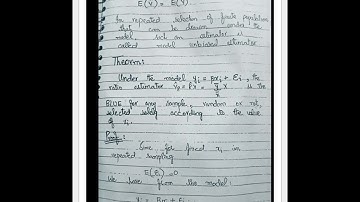 E(Y) = E(Y)
For repeated selection of finite populations
that can be drawn under the
model such an estimator is
called model unbiased estimator
Theorem:
Under the model yi = βxi + εi, the
ratio estimator is the
BLUE for any sample, random or not,
selected solely according to the value
of xi.
Proof:
Since for fixed xi in
repeated sampling
E(εi) = 0
We have from the model:
yi = βxi + εi